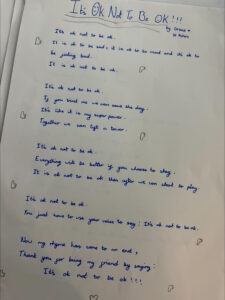 It's Ok Not To Be OK!!!
by
It's ok not to be ok.
It is ok to be sad, it is ok to be mad and it's ok to
be feeling bad.
It is ok not to be ok.
It's ok not to be ok.
If you trust me we can save the day.
It's like it is my super power.
Together we can lift a tower.
It's ok not to be ok.
Everything will be better if you choose to stay.
It is ok not to be ok then after we can start to play.
It's ok not to be ok.
You just have to use your voice to say: It's ok not to be ok.
Now my rhyme has come to an end,
Thank you for being my friend by saying:
It's ok not to be ok!!!